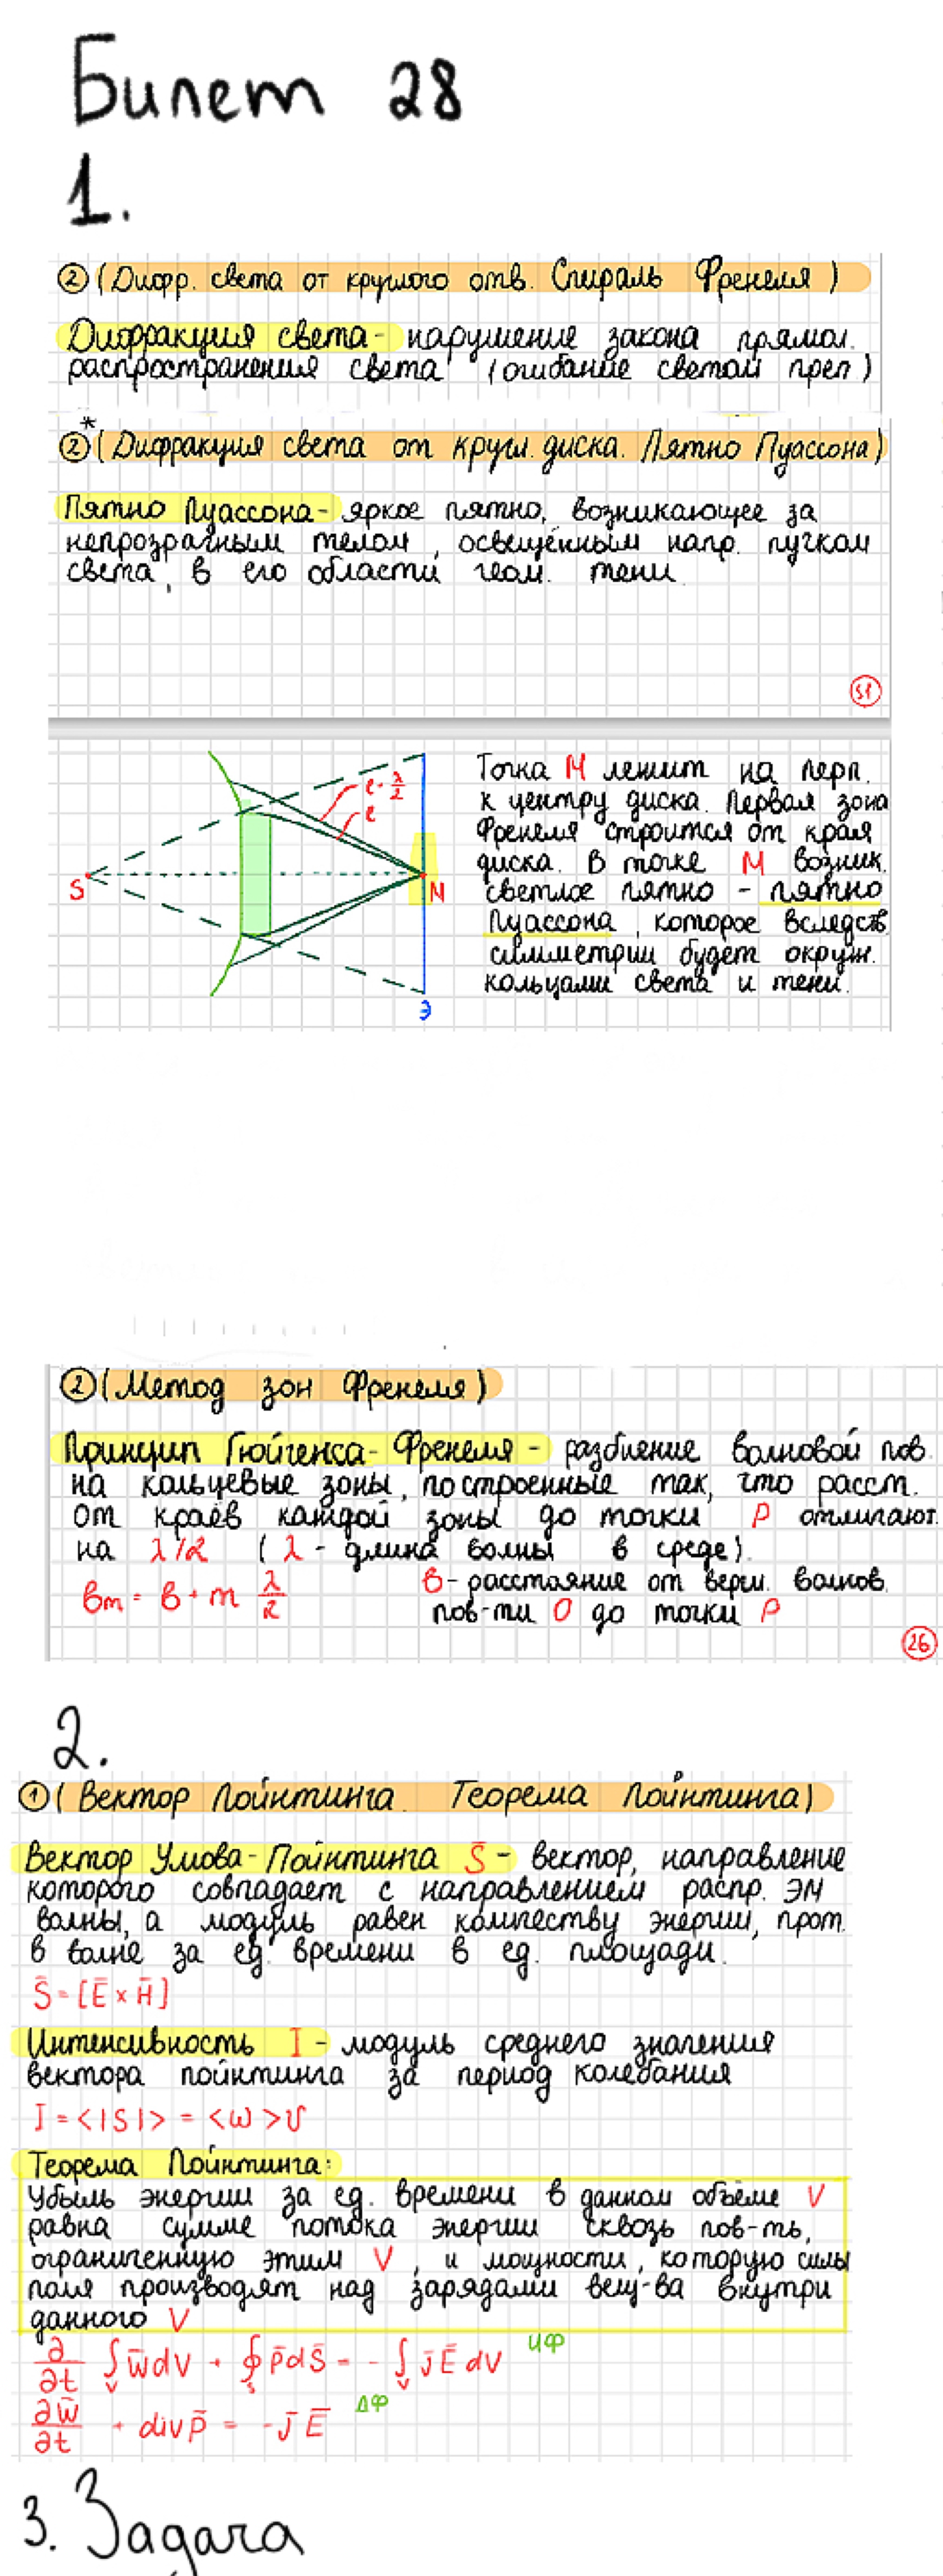 Билет 28
1.
② (Дифр. света от круглого отв. Спираль Френеля)
Дифракция света - нарушение закона прямол.
распространения света (огибание светом преп)
②* (Дифракция света от кругл. диска. Пятно Пуассона)
Пятно Пуассона - яркое пятно, возникающее за
непрозрачным телом, освещённым напр. пучком
света, в его области геом. тени.
51
S
ℓ + λ/2
ℓ
M
Э
Точка M лежит на перп.
к центру диска. Первая зона
Френеля строится от края
диска. В точке M возник.
светлое пятно - пятно
Пуассона, которое вследств.
симметрии будет окруж.
кольцами света и тени.
② (Метод зон Френеля)
Принцип Гюйгенса - Френеля - разбиение волновой пов.
на кольцевые зоны, построенные так, что расст.
от краёв каждой зоны до точки P отличают.
на λ/2 (λ - длина волны в среде).
bm = b + m λ/2
b - расстояние от верш. волнов.
пов-ти O до точки P
26
2.
① (Вектор Пойнтинга. Теорема Пойнтинга)
Вектор Умова - Пойнтинга S̄ - вектор, направление
которого совпадает с направлением распр. ЭМ
волны, а модуль равен количеству энергии, прот.
в волне за ед. времени в ед. площади.
S̄ = [Ē × H̄]
Интенсивность I - модуль среднего значения
вектора пойнтинга за период колебания
I = <|S|> = <ω>υ
Теорема Пойнтинга:
Убыль энергии за ед. времени в данном объёме V
равна сумме потока энергии сквозь пов-ть,
ограниченную этим V, и мощности, которую силы
поля производят над зарядами вещ-ва внутри
данного V
∂/∂t ∫v w̄dV + ∮s p̄dS̄ = - ∫v j̄ Ē dV ИФ
∂w̄/∂t + div p̄ = - j̄ Ē ДФ
3. Задача